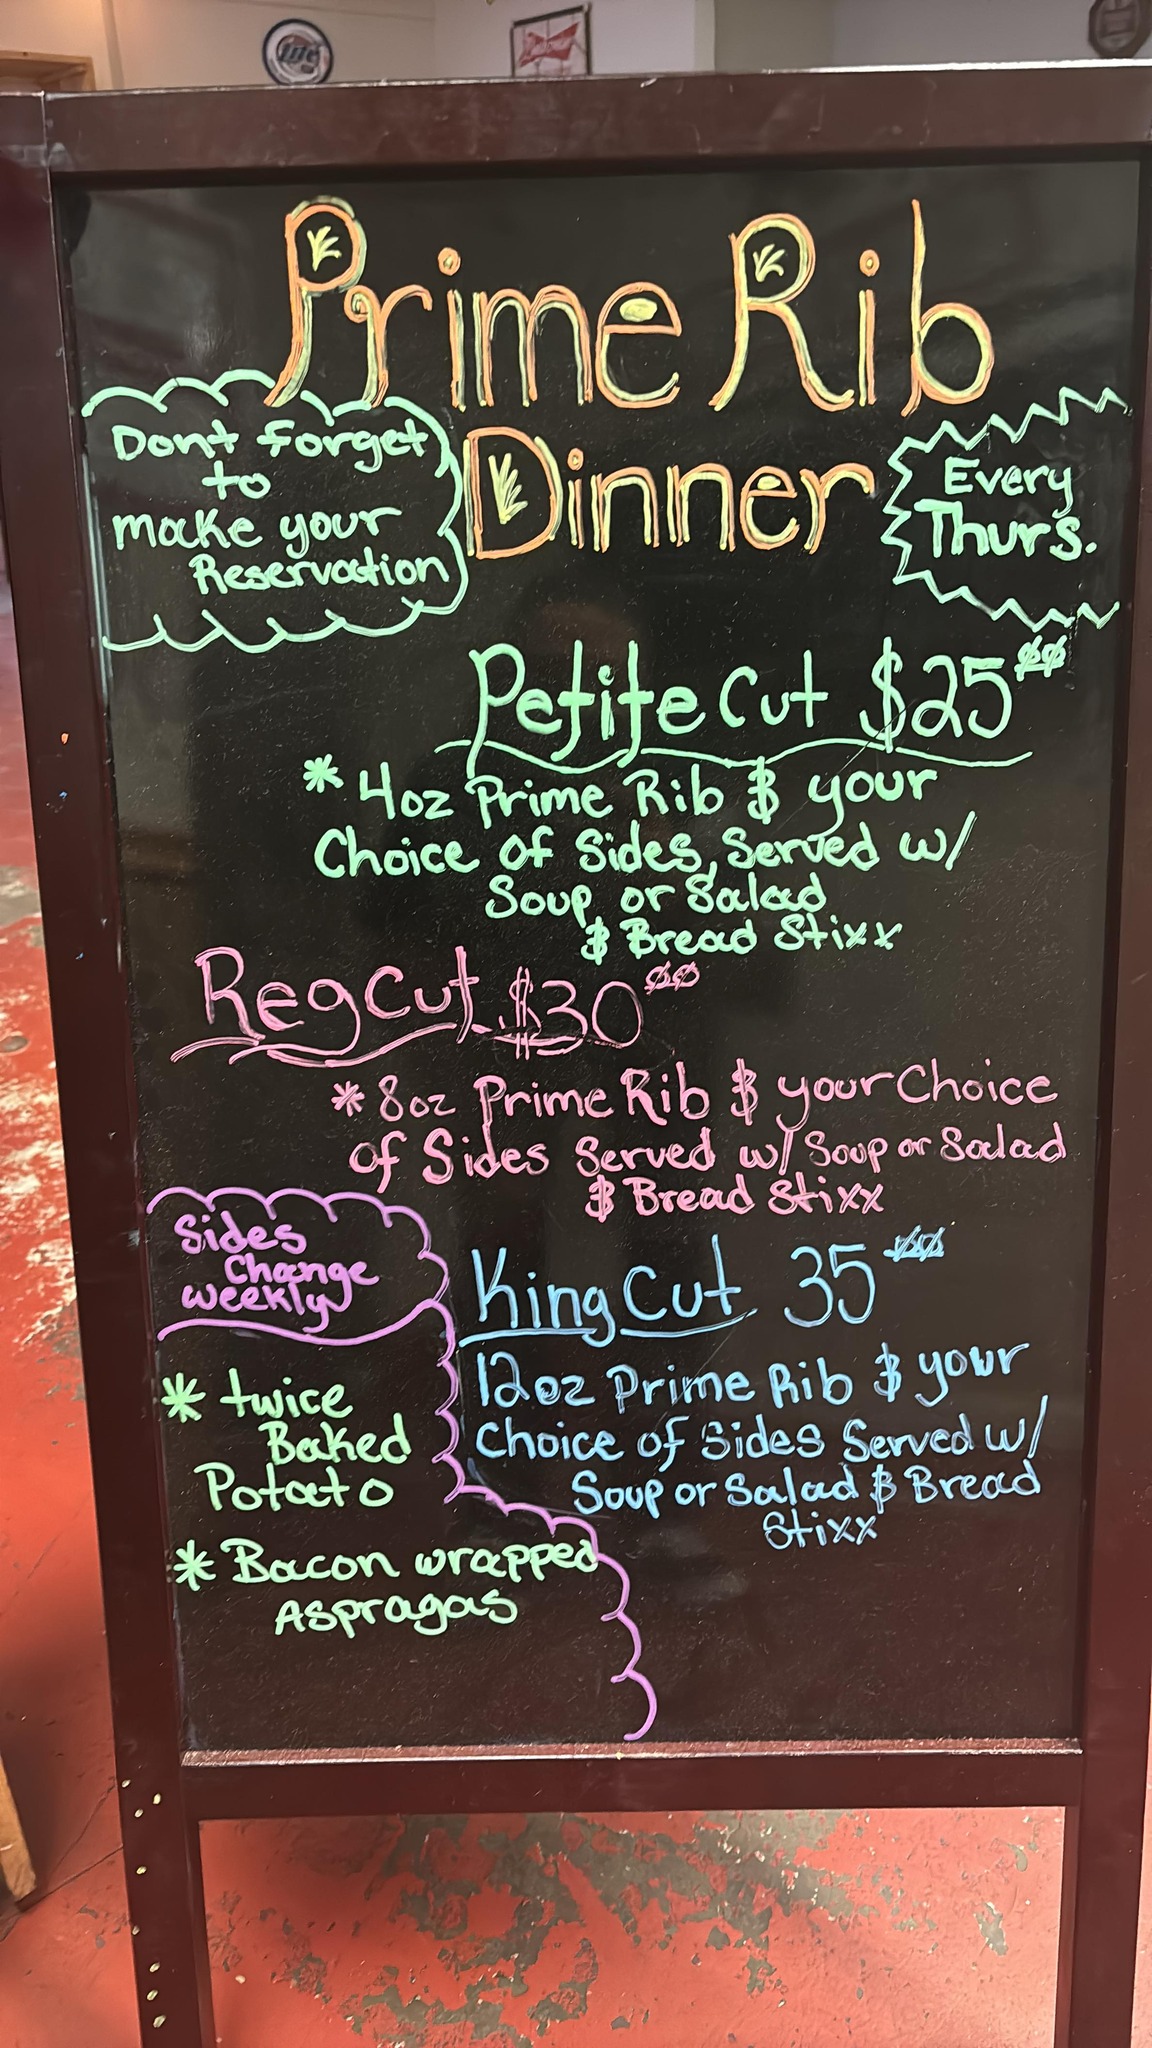 Lite
Prime Rib
Dinner
Dont forget
to
make your
Reservation
Every
Thurs.
Petite Cut $25.00
* 4oz Prime Rib & your
Choice of Sides, Served w/
Soup or Salad
& Bread Stixx
Reg Cut $30.00
* 8oz Prime Rib & your Choice
of Sides Served w/ Soup or Salad
& Bread Stixx
Sides
Change
weekly
* twice
Baked
Potato
* Bacon wrapped
Aspragas
King Cut 35.00
12oz Prime Rib & your
Choice of Sides Served w/
Soup or Salad & Bread
Stixx